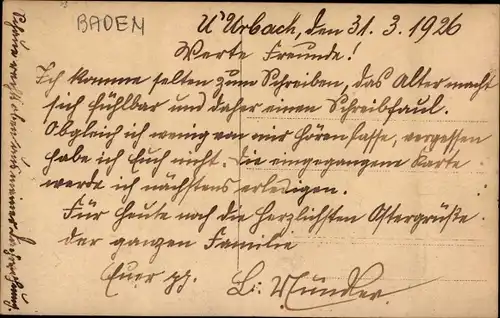 BADEN
U'Urbach, den 31.3.1926
Werte Freunde!
Ich komme selten zum Schreiben, das Alter macht
sich fühlbar und daher einen Schreibfaul.
Obgleich ich wenig von mir hören lasse, vergessen
habe ich Euch nicht. Die eingegangene Karte
werde ich nächstens erledigen.
Für heute noch die herzlichsten Ostergrüße
der ganzen Familie
Euer gg.